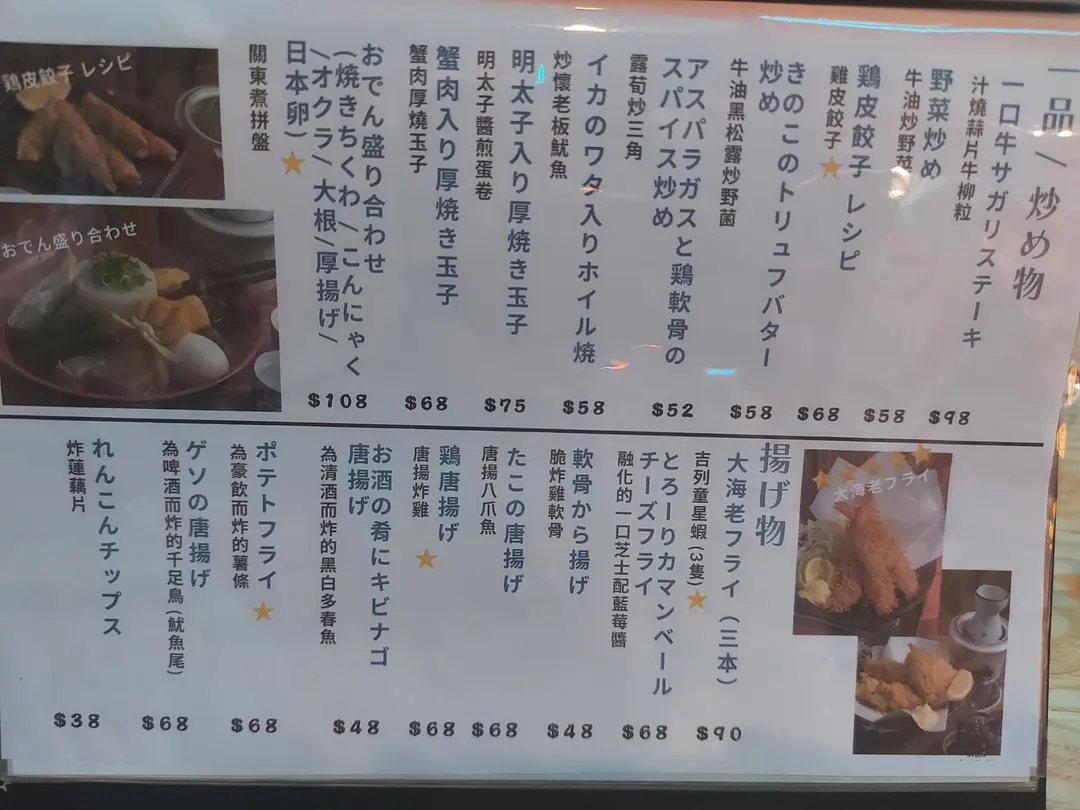 一品/炒め物
一口牛サガリステーキ
汁燒蒜片牛柳粒
$98
野菜炒め
牛油炒野菜
$58
鶏皮餃子 レシピ
雞皮餃子
$68
きのこのトリュフバター
炒め
牛油黑松露炒野菌
$58
アスパラガスと鶏軟骨の
スパイス炒め
露荀炒三角
$52
イカのワタ入りホイル焼
炒懷老板魷魚
$58
明太子入り厚焼き玉子
明太子醬煎蛋卷
$75
蟹肉入り厚焼き玉子
蟹肉厚燒玉子
$68
おでん盛り合わせ
(焼きちくわ/こんにゃく
/オクラ/大根/厚揚げ/
日本卵)
關東煮拼盤
$108
鶏皮餃子 レシピ
おでん盛り合わせ
大海老フライ
揚げ物
大海老フライ (三本)
吉列童星蝦(3隻)
$90
とろーりカマンベール
チーズフライ
融化的一口芝士配藍莓醬
$68
軟骨から揚げ
脆炸雞軟骨
$48
たこの唐揚げ
唐揚八爪魚
$68
鶏唐揚げ
唐揚炸雞
$68
お酒の肴にキビナゴ
唐揚げ
為清酒而炸的黑白多春魚
$48
ポテトフライ
為豪飲而炸的薯條
$68
ゲソの唐揚げ
為啤酒而炸的千足鳥(魷魚尾)
$68
れんこんチップス
炸蓮藕片
$38